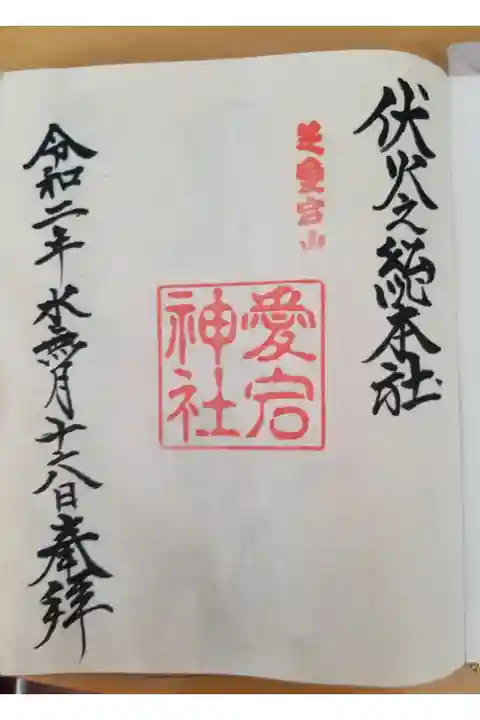 伏火之総本社
芝愛宕山
愛宕
神社
令和二年水無月十六日奉拝